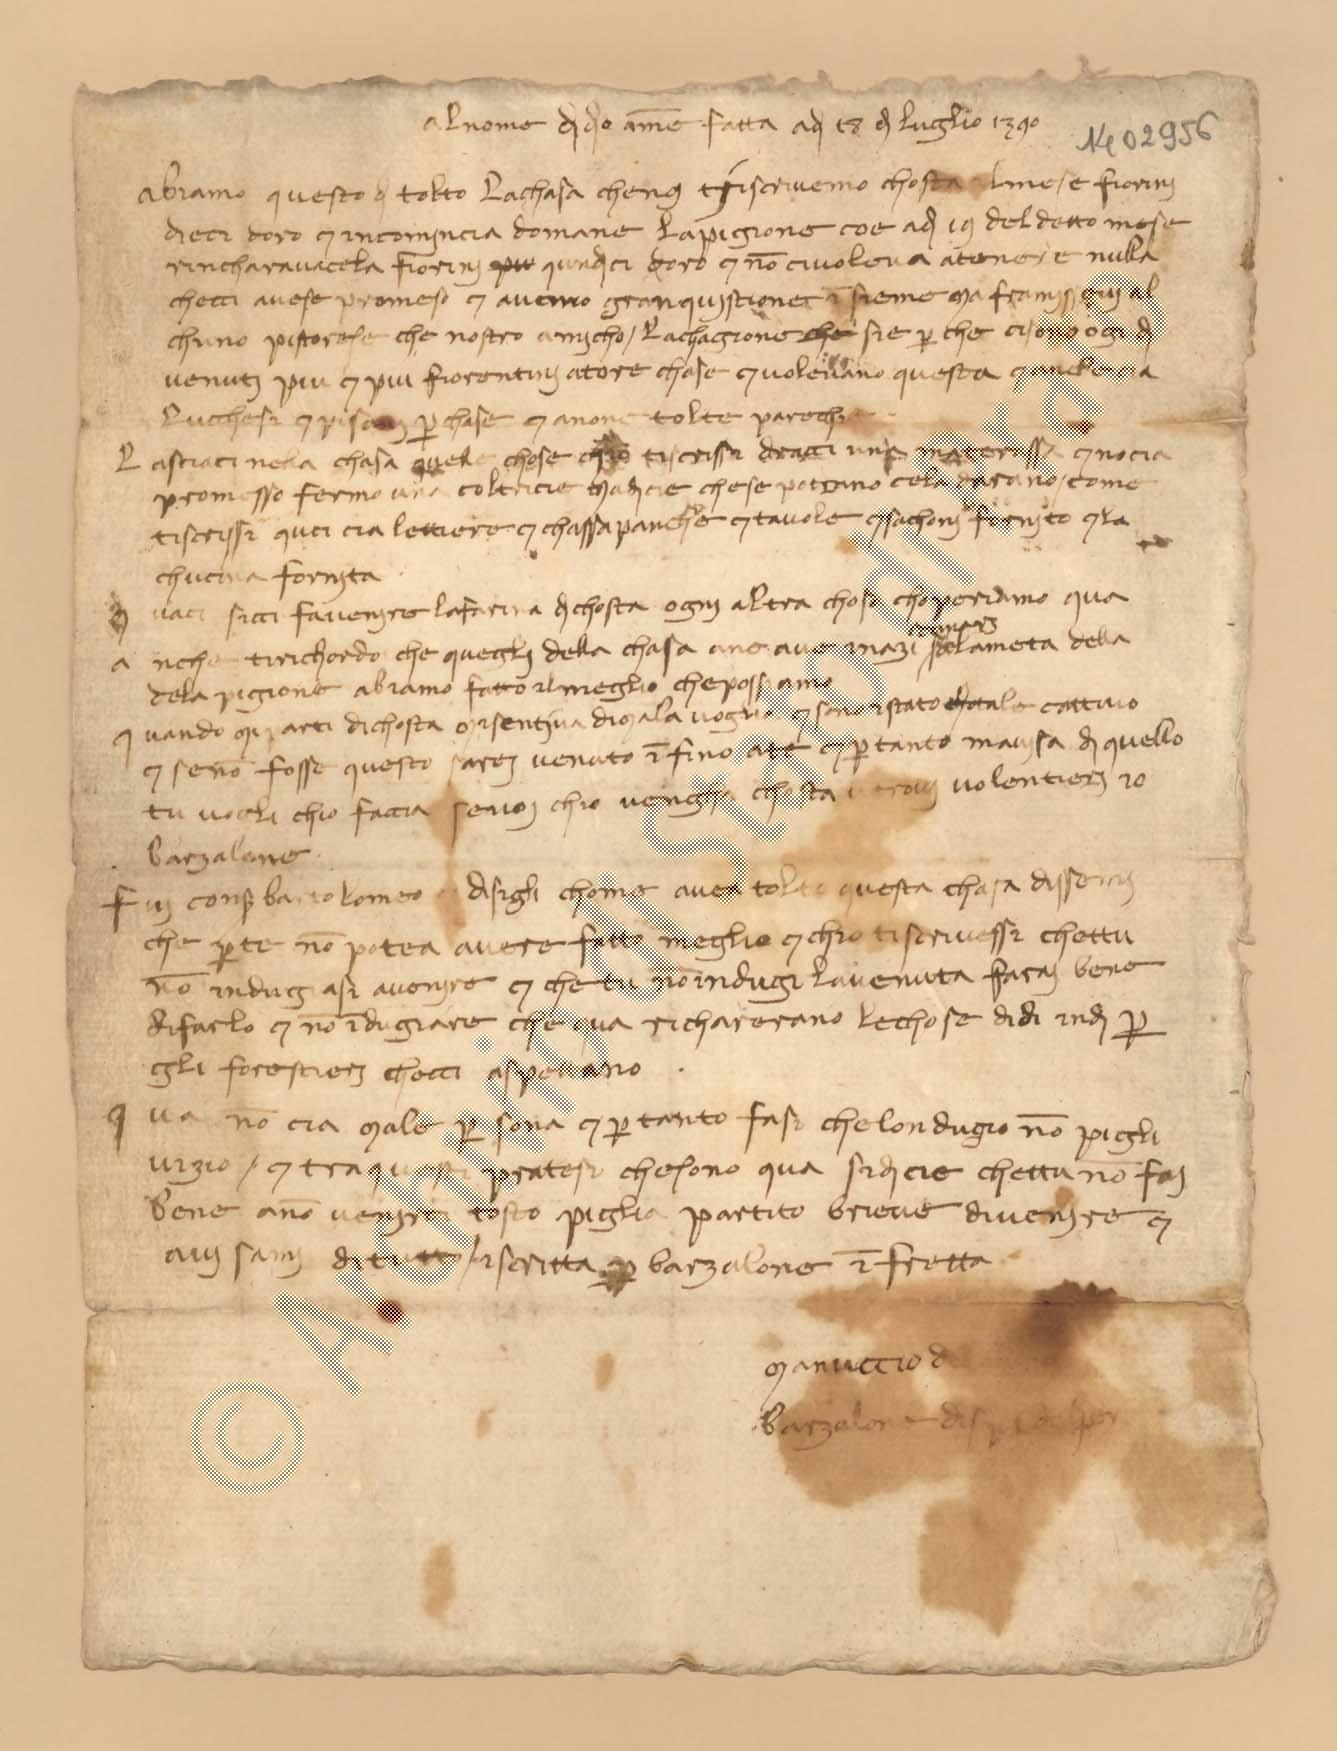 al nome di dio ame fatta adi 18 di luglio 1390
1402956
abiamo questo di tolto la chasa che noi ti iscrivemo chosta il mese fiorini
dieci doro e incomincia domane la pigione coe adi 19 del detto mese
rincharavacela fiorini quindici doro e nō ci voleva atenere nulla
checci avese promeso e avemo gran quistione ī sieme ma
chuno pistorese che nostro amicho / la chagione che sie p che ci sono ogi di
venuti piu e piu fiorentini a tore chase e volevano questa e
lucchesi e pisani p chase e anone tolte parechie
L asciaci nela chasa quele chose chio ti scrissi dracci una materassa e nocia
promesso fermo una coltricie ma dicie che se potrano cela darano / come
ti scrissi quci cia lettiere e chassapanche e tavole e sachoni fornito e la
chucina fornita
vaci sicci fa venire la farina di chosta ogni altra chosa cho periamo qua
a nche ti richordo che quegli della chasa ane ave inazi la meta della
dela pigione abiamo fatto il meglio che possiamo
q uando mi parti di chosta mi sentiva di mala voglia e sono istato cattivo
e se nō fosse questo sarei venuto ī fino a te e p tanto mavisa di quello
tu vogli chio faccia se voi chio vengha chosta verovi volentieri io
barzalone
F ui con s bartolomeo e disigli chome avea tolto questa chasa dissemi
che p te nō potea avere fatto meglio e chio ti scrivessi chettu
nō indugiasi a venire e che tu nō indugi la venuta farai bene
di farlo e nō īdugiare che qua richarerano le chose di di in di p
gli forestieri checci aspettano
q ua nō cia male p sona e p tanto fa si che londugio nō pigli
vizio / e tra questi pratesi che sono qua si dicie chettu nō fai
bene a nō venirci tosto piglia partito brieve di venire e
avisami di tutto / iscritta p barzalone ī fretta
manuccio d
barzalone di sp
© Archivio di Stato di Prato